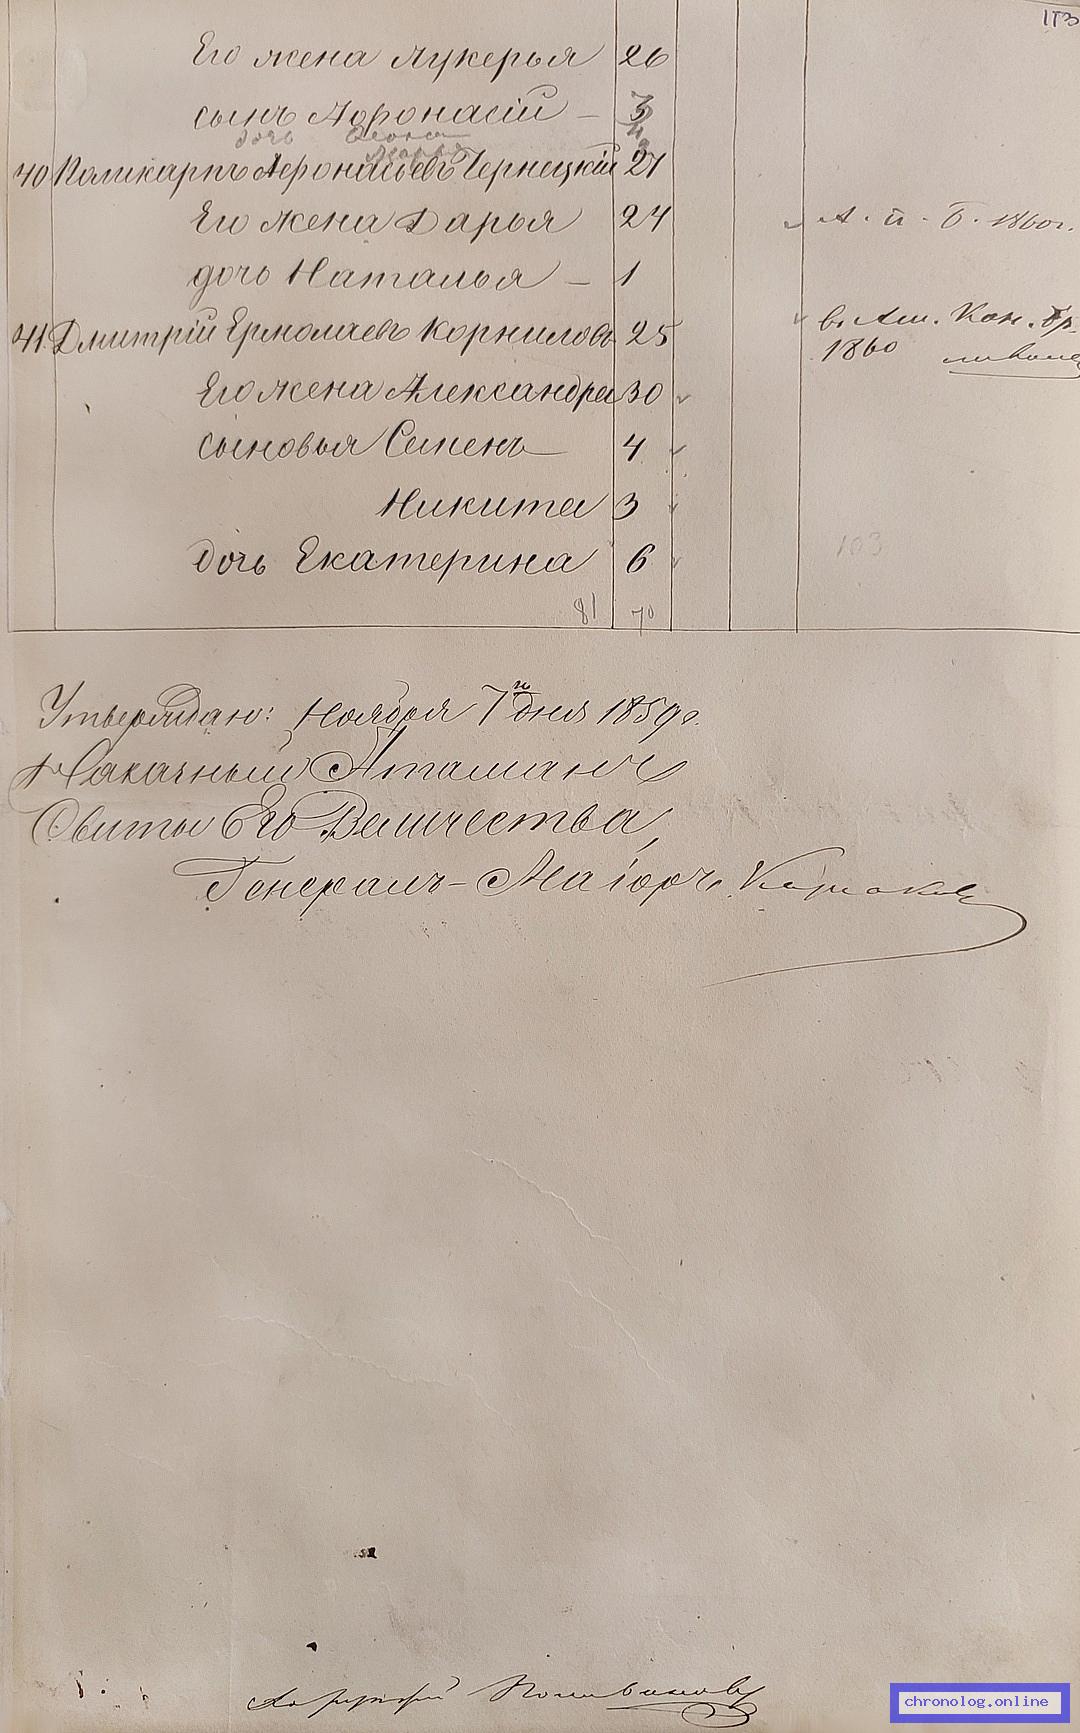 113
Его жена Лукерья 26
сынъ Афонасій — 3
дочь
40 Поликарпъ Афонасьевъ Чернецкій 27
Его жена Дарья 24 А. п. б. 1860 г.
дочь Наталья — 1
41. Дмитрій Ермолаевъ Корниловъ 25 въ Ам. Кон. бр.
1860
Его жена Александра 30
сыновья Семенъ 4
Никита 3
дочь Екатерина 6
103
81 70
Утверждаю: Ноября 7го дня 1859 г.
Наказный Атаманъ
Свиты Его Величества,
Генералъ-Маіоръ
Хорунжій
chronolog.online